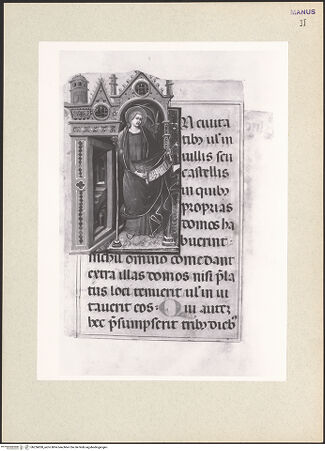 MANUS
II
N ciuita
tib͛ uƚ in
uillis seu
castellis
in quib͛
proprias
domos ha
buerint
nichil omnino comedant
extra illas domos nisi p̃la
tus loci uenerit uƚ in ui
tauerit eos · Qui autẽ
hec p̃sumpserit trib͛ dieb͛